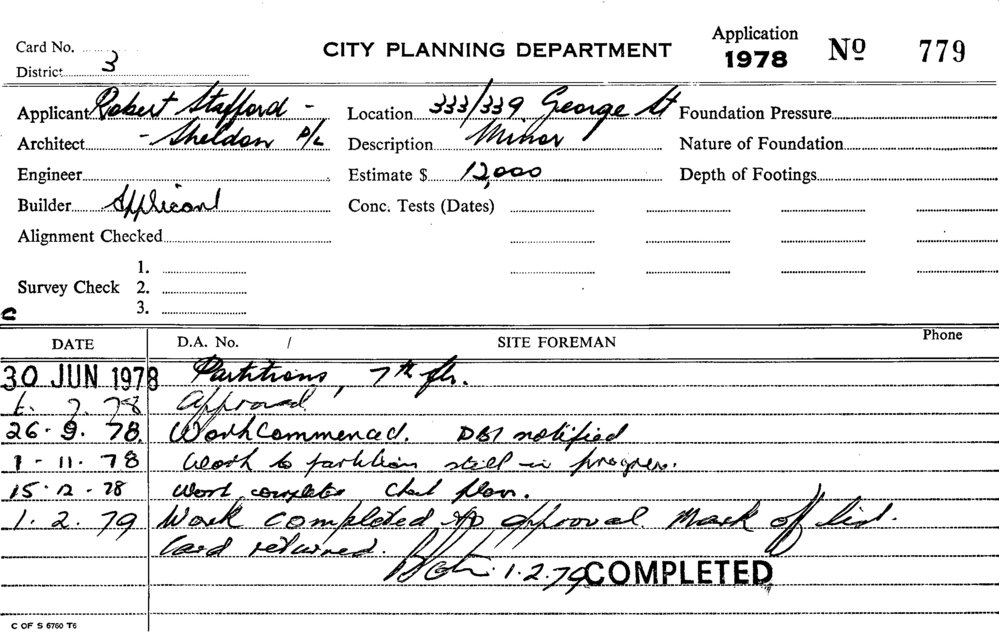 Card No.
CITY PLANNING DEPARTMENT
Application
1978 No 779
District 3
Applicant Robert Stafford - Location 333/339 George St Foundation Pressure
Architect - Sheldon P/L Description Minor Nature of Foundation
Engineer Estimate $ 12,000 Depth of Footings
Builder Applicant Conc. Tests (Dates)
Alignment Checked
1.
Survey Check 2.
3.
c
DATE D.A. No. / SITE FOREMAN Phone
30 JUN 1978 Partitions, 7th flr.
7. 78 Approved
26-9. 78 Work Commenced. DBI notified
1-11. 78 Work to partition still in progress.
15-12-78 Work complete Check plan.
1. 2. 79 Work completed to approval Mark of list.
Card returned.
1.2.79 COMPLETED
C OF S 6760 T6